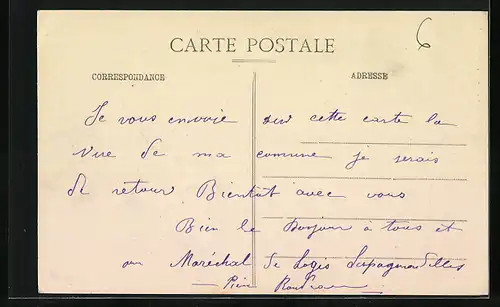 6
CARTE POSTALE
CORRESPONDANCE
ADRESSE
Je vous envoie sur cette carte la
vue de ma commune je serais
de retour Bientôt avec vous
Bien le Bonjour à tous et
au Maréchal de Logis